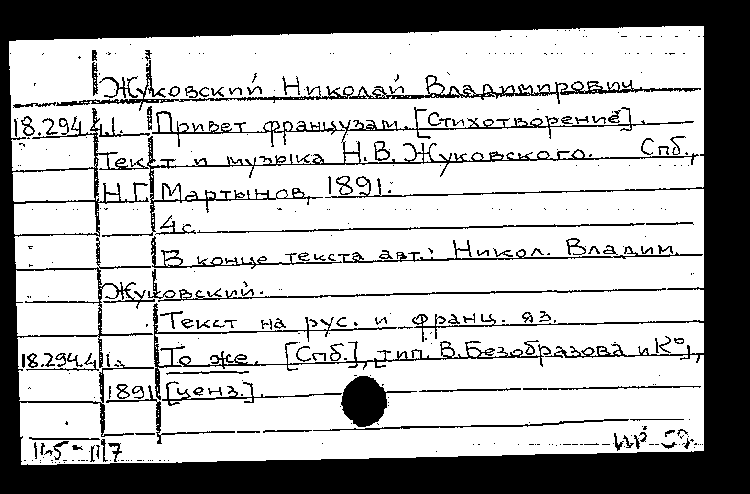 Жуковский, Николай Владимирович.
18.294.4.1. Привет французам. [Стихотворение].
Текст и музыка Н.В. Жуковского. Спб.,
Н.Г. Мартынов, 1891.
4с.
В конце текста авт.: Никол. Владим.
Жуковский.
Текст на рус. и франц. яз.
18.294.4.1а То же. [Спб.], тип. В. Безобразова и К°,
1891 [ценз.].